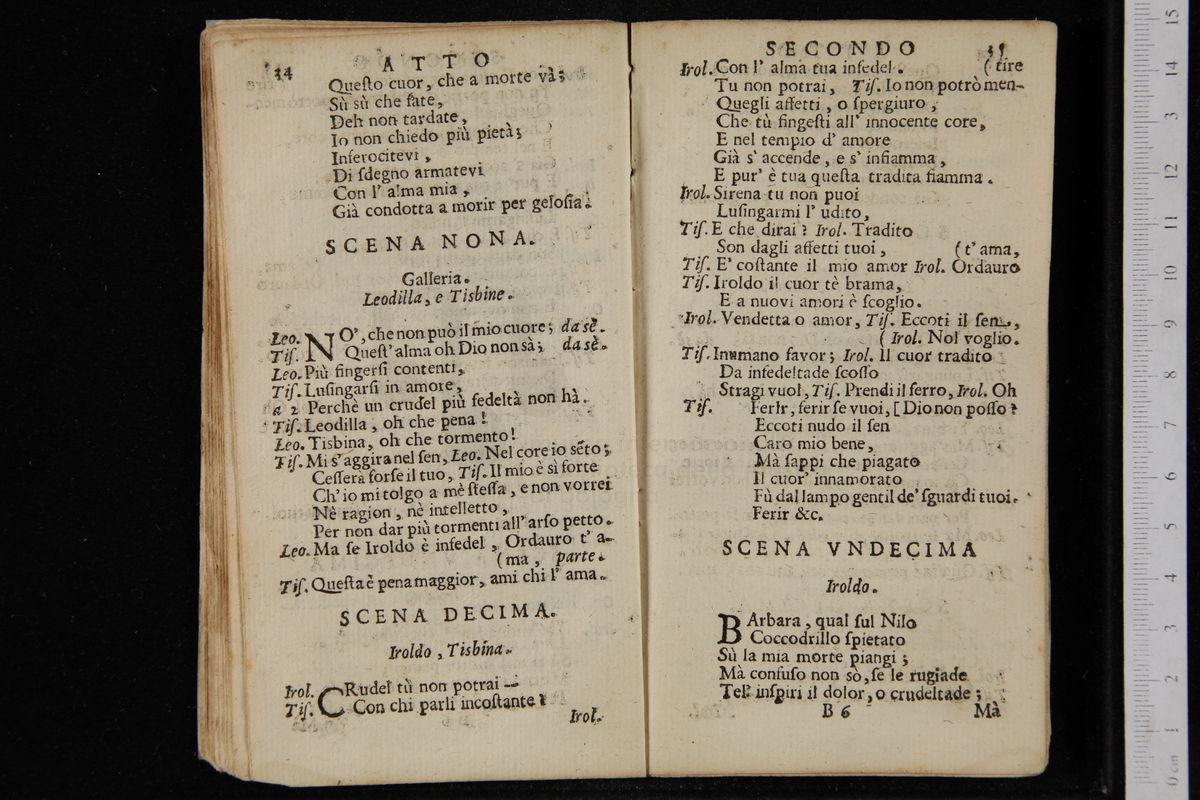 34 ATTO
Queſto cuor, che a morte và;
Sù sù che fate,
Deh non tardate,
Io non chiedo più pietà;
Inferocitevi,
Di ſdegno armatevi
Con l' alma mia,
Già condotta a morir per geloſia.
SCENA NONA.
Galleria.
Leodilla, e Tisbine.
Leo. NO', che non può il mio cuore; da sè.
Tiſ. Queſt' alma oh Dio non sà; da sè.
Leo. Più fingerſi contenti,
Tiſ. Luſingarſi in amore,
a 2 Perchè un crudel più fedeltà non hà.
Tiſ. Leodilla, oh che pena!
Leo. Tisbina, oh che tormento!
Tiſ. Mi s' aggira nel ſen, Leo. Nel core io sẽto;
Ceſſerà forſe il tuo, Tiſ. Il mio è sì forte
Ch' io mi tolgo a mè ſteſſa, e non vorrei
Nè ragion, nè intelletto,
Per non dar più tormenti all' arſo petto.
Leo. Ma ſe Iroldo è infedel, Ordauro t' a-
(ma, parte.
Tiſ. Queſta è pena maggior, ami chi l' ama.
SCENA DECIMA.
Iroldo, Tisbina.
Irol. CRudel tù non potrai —
Tiſ. Con chi parli incoſtante?
Irol.
SECONDO 35
Irol. Con l' alma tua infedel. (tire
Tu non potrai, Tiſ. Io non potrò men-
Quegli affetti, o ſpergiuro,
Che tù fingeſti all' innocente core,
E nel tempio d' amore
Già s' accende, e s' infiamma,
E pur' è tua queſta tradita fiamma.
Irol. Sirena tu non puoi
Luſingarmi l' udito,
Tiſ. E che dirai? Irol. Tradito
Son dagli affetti tuoi, (t' ama,
Tiſ. E' coſtante il mio amor Irol. Ordauro
Tiſ. Iroldo il cuor tè brama,
E a nuovi amori è ſcoglio.
Irol. Vendetta o amor, Tiſ. Eccoti il ſeno,
(Irol. Nol voglio.
Tiſ. Inumano favor; Irol. Il cuor tradito
Da infedeltade ſcoſſo
Stragi vuol, Tiſ. Prendi il ferro, Irol. Oh
Tiſ. Ferir, ferir ſe vuoi, [Dio non poſſo?
Eccoti nudo il ſen
Caro mio bene,
Mà ſappi che piagato
Il cuor' innamorato
Fù dal lampo gentil de' ſguardi tuoi.
Ferir &c.
SCENA VNDECIMA
Iroldo.
BArbara, qual ſul Nilo
Coccodrillo ſpietato
Sù la mia morte piangi;
Mà confuſo non sò, ſe le rugiade
Tel' inſpiri il dolor, o crudeltade;
B 6 Mà